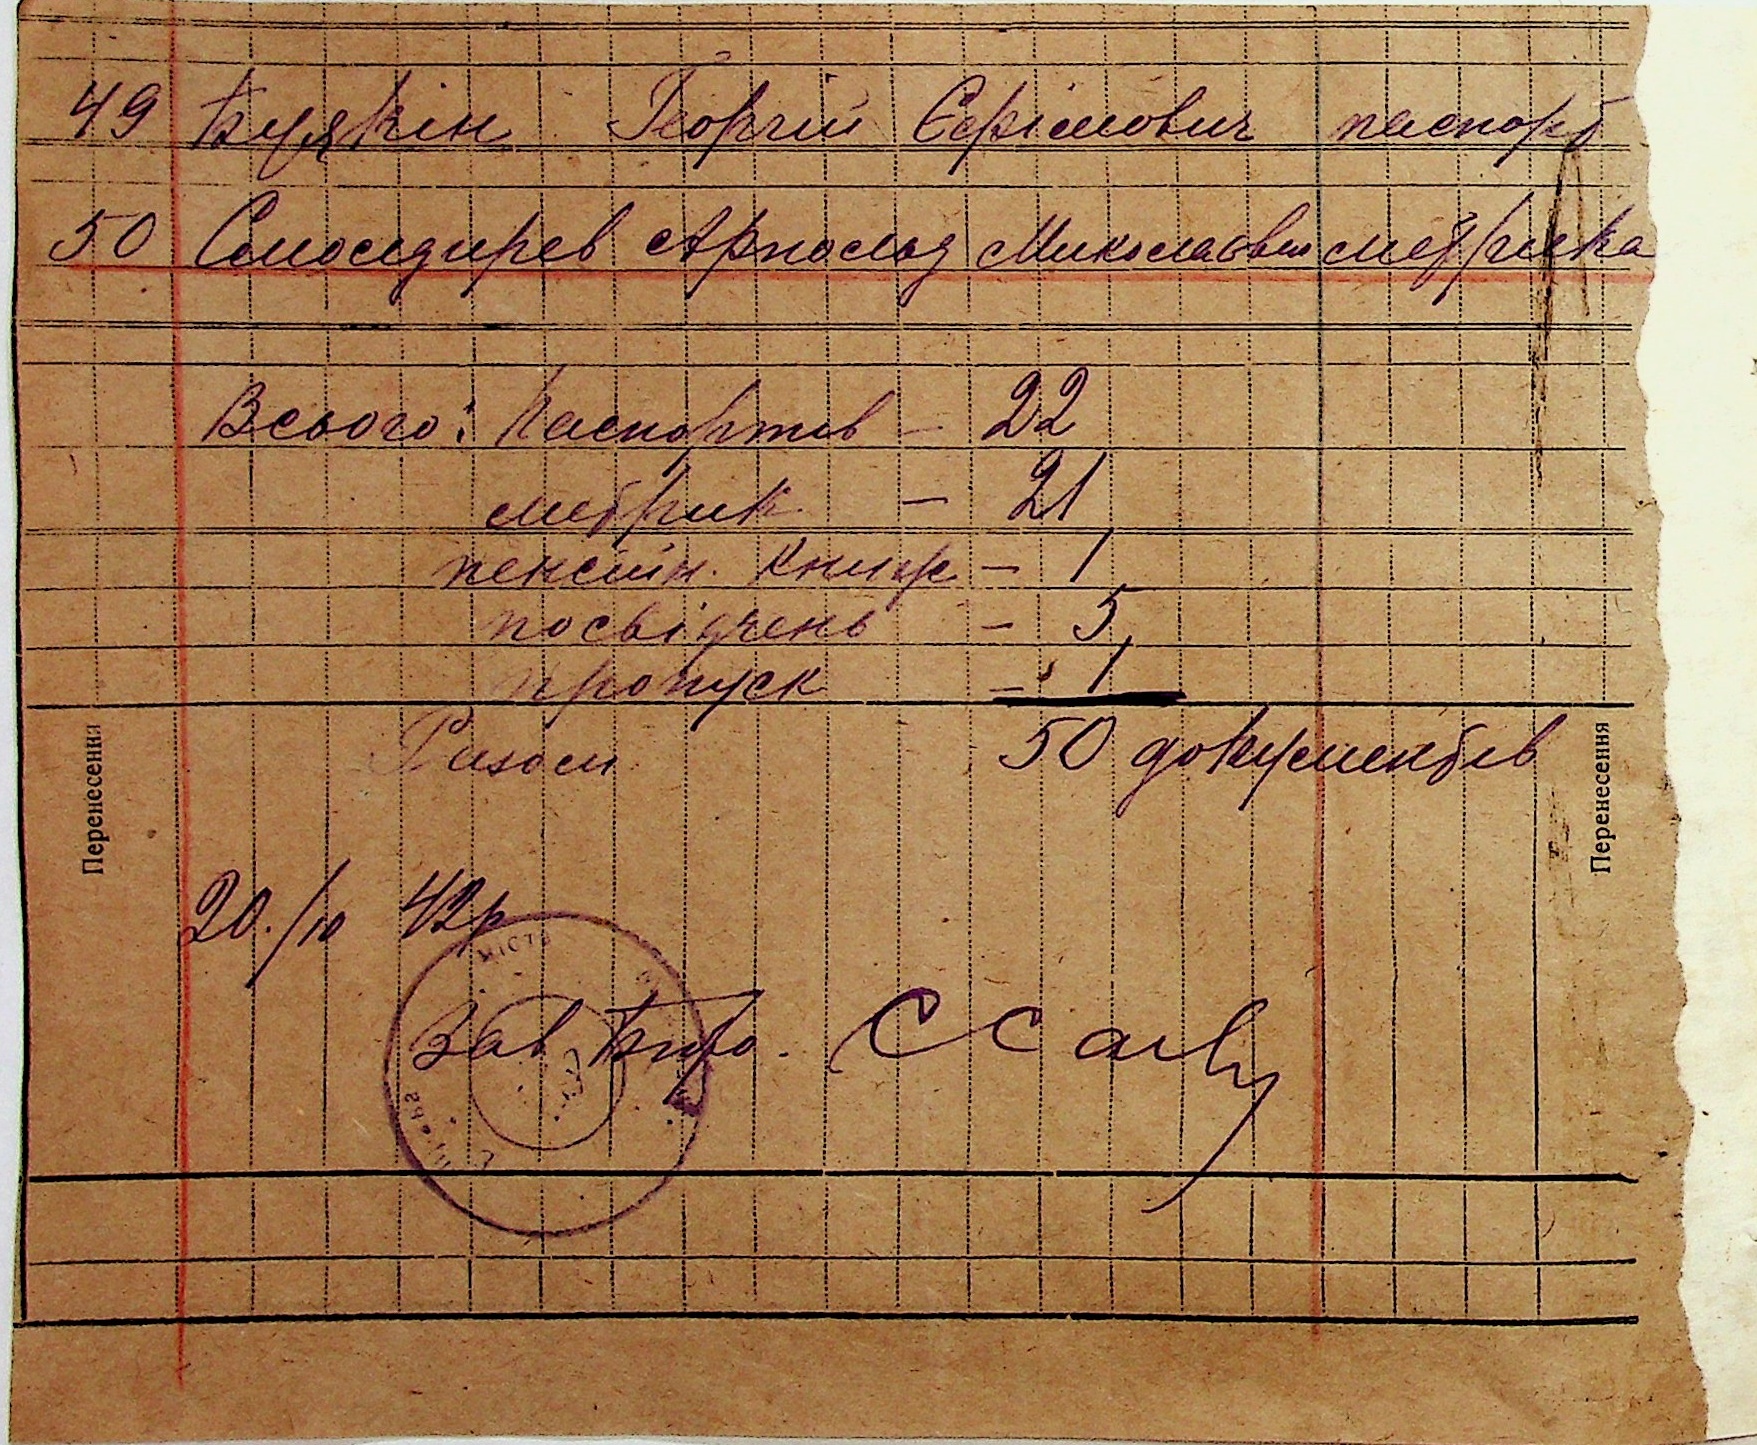 49 Букякін Георгій Єфімович паспорт
50 Самосидирев Арнольд Миколаєвич метрика
Всього: Паспортов – 22
метрик – 21
пенсійн. книж – 1
посвідчень – 5
пропуск – 1
Разом 50 документів
Перенесення
Перенесення
20./10 42р
міста
Зав Бюро.